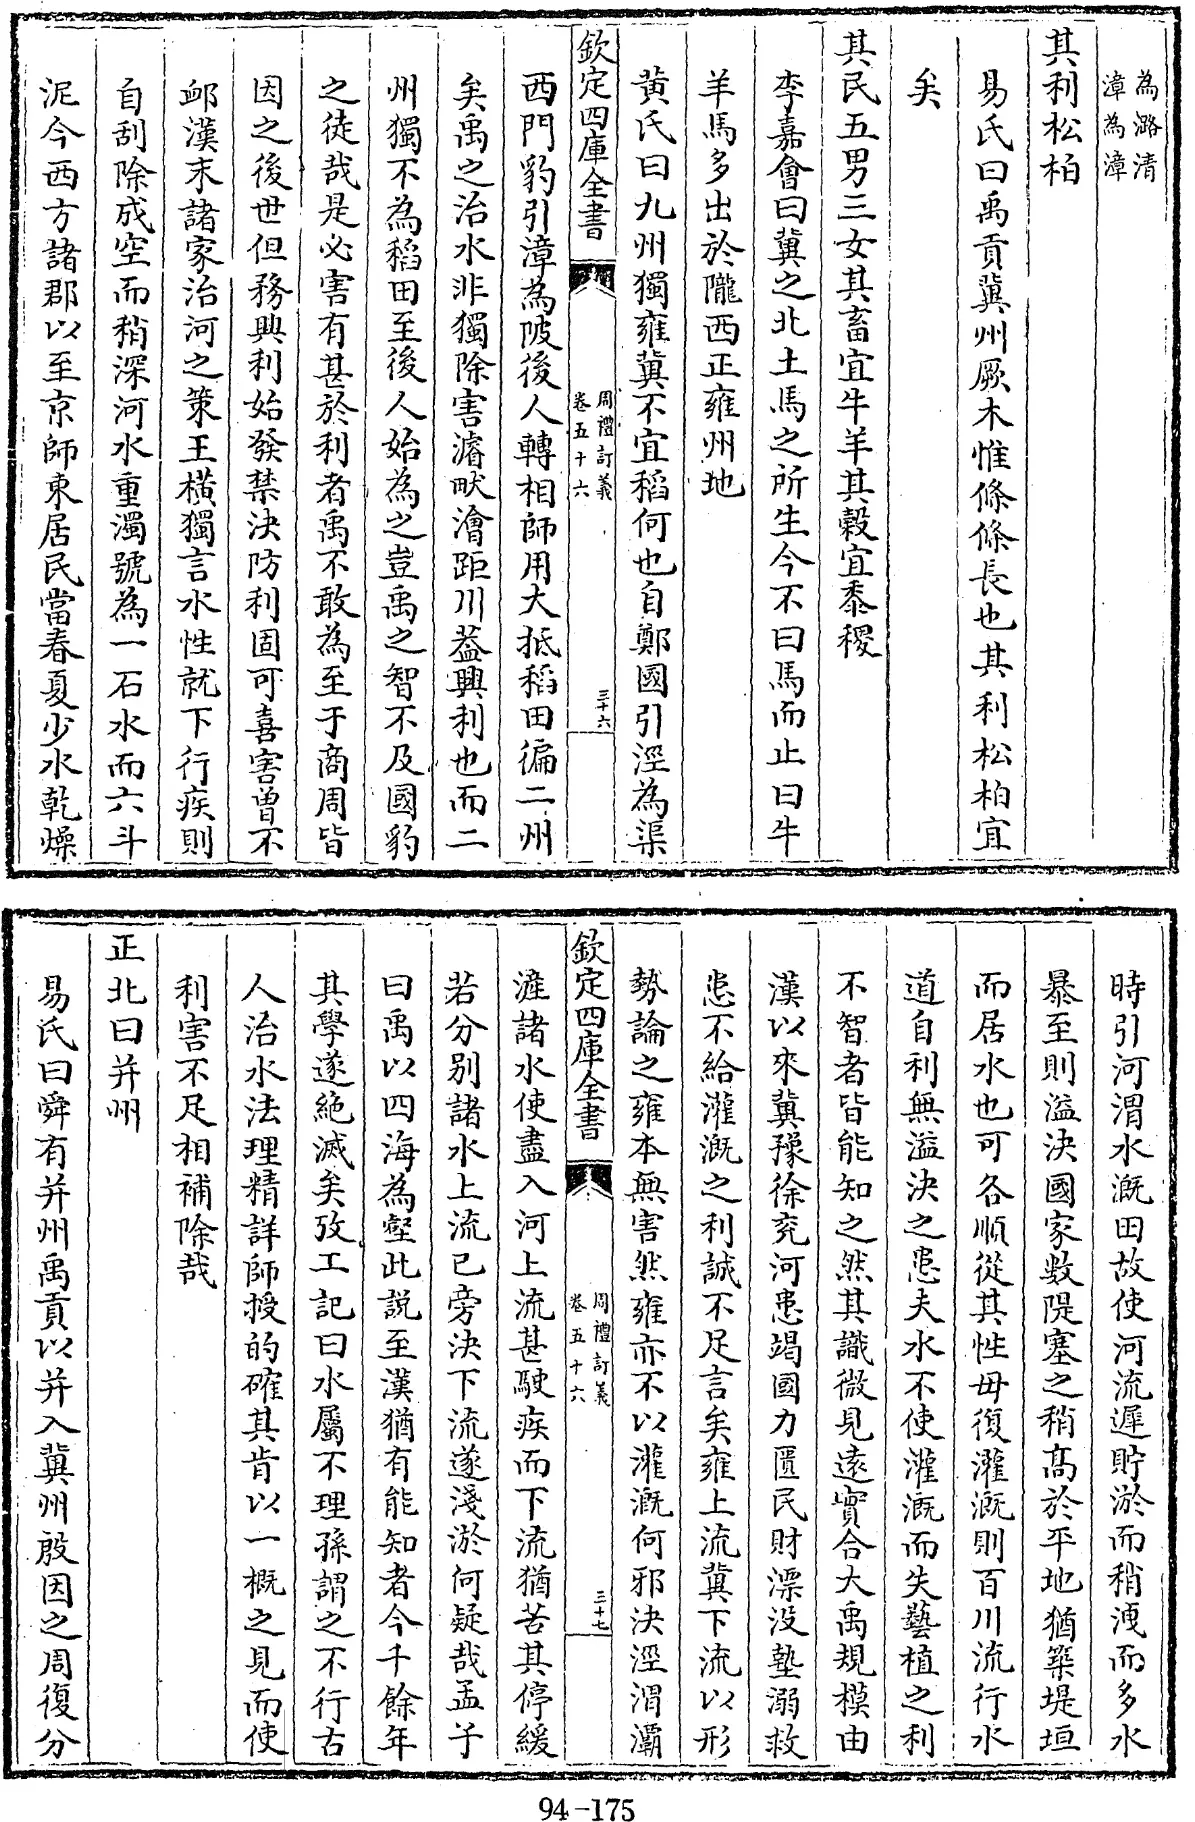 為潞清
漳為漳
其利松柏
易氏曰禹貢冀州厥木惟條條長也其利松柏宜
矣
其民五男三女其畜宜牛羊其穀宜黍稷
李嘉會曰冀之北土馬之所生今不曰馬而止曰牛
羊馬多出於隴西正雍州地
黃氏曰九州獨雍冀不宜稻何也自鄭國引涇為渠
欽定四庫全書
周禮訂義
卷五十六
三十六
西門豹引漳為陂後人轉相師用大抵稻田徧二州
矣禹之治水非獨除害濬畎澮距川葢興利也而二
州獨不為稻田至後人始為之豈禹之智不及國豹
之徒哉是必害有甚於利者禹不敢為至于商周皆
因之後世但務興利始發禁決防利固可喜害曾不
卹漢末諸家治河之策王橫獨言水性就下行疾則
自刮除成空而稍深河水重濁號為一石水而六斗
泥今西方諸郡以至京師東居民當春夏少水乾燥
時引河渭水溉田故使河流遲貯淤而稍洩而多水
暴至則溢決國家数隄塞之稍髙於平地猶築堤垣
而居水也可各順從其性毋復灌溉則百川流行水
道自利無溢決之患夫水不使灌溉而失藝植之利
不智者皆能知之然其識微見遠實合大禹規模由
漢以來冀豫徐兖河患竭國力匱民財漂没墊溺救
患不給灌溉之利誠不足言矣雍上流冀下流以形
勢論之雍本無害然雍亦不以灌溉何邪決涇渭灞
欽定四庫全書
周禮訂義
卷五十六
三十七
滻諸水使盡入河上流甚駛疾而下流猶苦其停緩
若分別諸水上流已旁決下流遂淺淤何疑哉孟子
曰禹以四海為壑此説至漢猶有能知者今千餘年
其學遂絶滅矣攷工記曰水屬不理孫謂之不行古
人治水法理精詳師授的確其肯以一概之見而使
利害不足相補除哉
正北曰并州
易氏曰舜有并州禹貢以并入冀州殷因之周復分
94-175